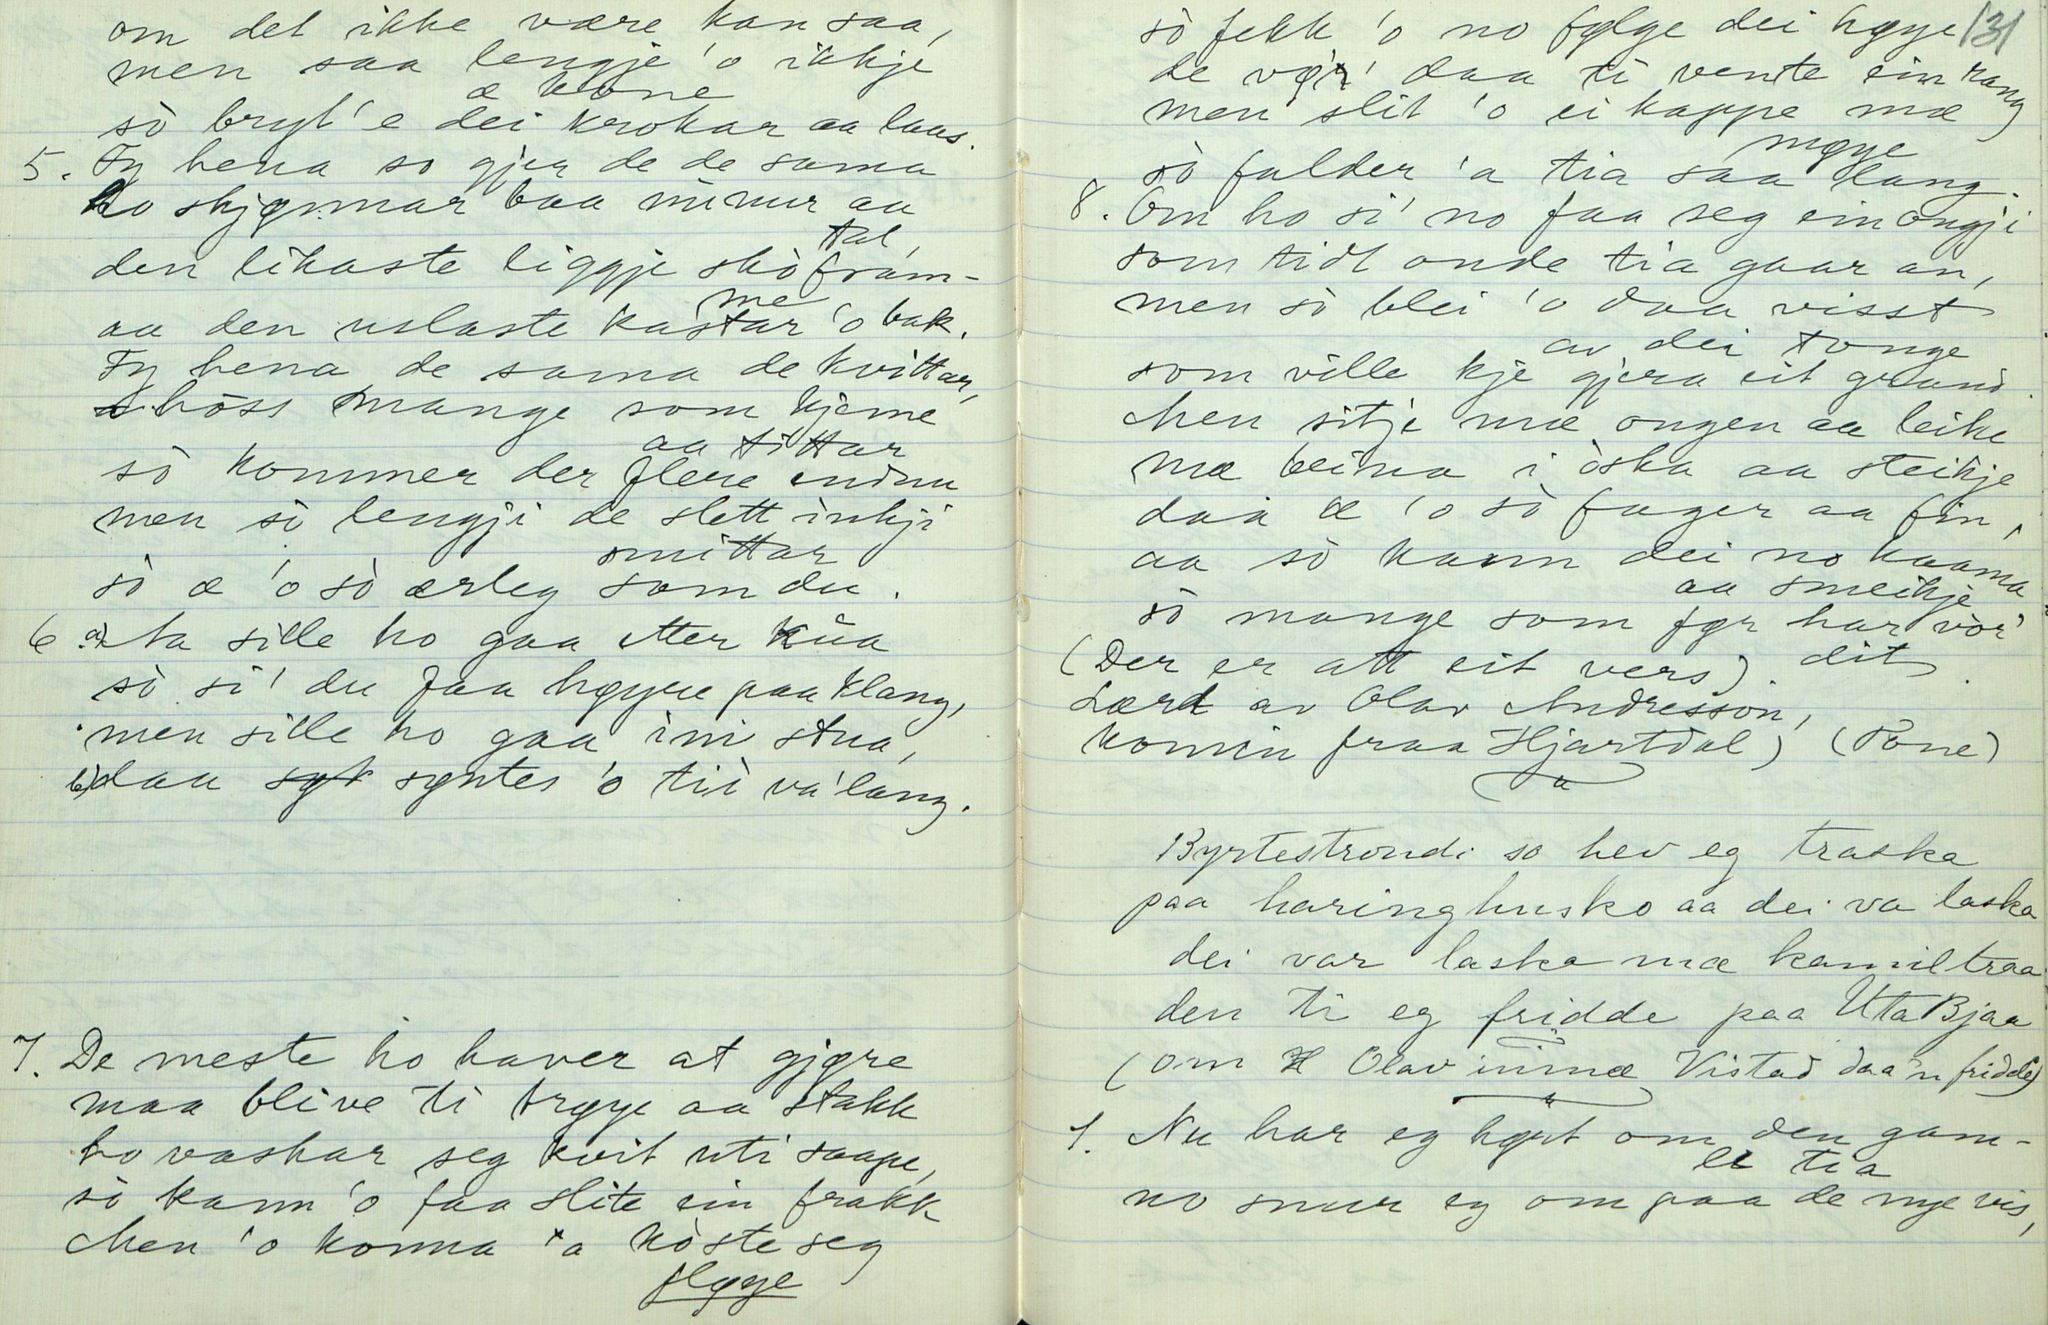 om det ikke være kan saa,
men saa lengje 'o ikkje
æ kone
sò bryt 'e dei krokar aa laas.
5. Ty hena so gjer de de sama
ho skjønnar baa minur aa
tal,
den likaste liggje skò fram-
me
aa den uslaste kastar 'o bak.
Ty hena de sama de kvittar,
hòss mange som kjeme
aa tittar
sò kommer der flere endnu
men sò lengji de slett inkji
smittar
sò æ 'o sò ærleg som du.
6 a) Ta sille ho gaa etter kua
sò si' du faa høyre paa klang,
men sille ho gaa ini stua,
b) daa syntes 'o tii va' lang.
7. De meste ho haver at gjøre
maa blive ti trøye aa stakk
ho vaskar seg kvit uti saape,
sò kann 'o faa slite ein frakk
Men 'o konna 'a kòste seg
fløye
131
sò fekk 'o no følge dei høye
de vør' daa ti vente ein rang
men slit 'o ei kappe mæ
møye
sò falder 'a tia saa lang.
8. Om ho si' no faa seg ein ongji
som tidt onde tia gaar an,
men sò blei 'o daa visst
av dei tonge
som ville kje gjera eit grand.
Men sitje mæ ongen aa leike
mæ beina i òska aa steikje
daa æ 'o sò fager aa fin,
aa sò kann dei no kaama
aa smeikje
sò mange som før har vòr'
dit.
(Der er att eit vers)
Lært av Olav Andresson,
komin fraa Hjartdal) (Tone)
Byrtestrondi so hev eg traska
paa haringhusko aa dei va laska
dei var laska mæ kamiltraa
den ti eg fridde paa Uta Bjaa
(om Olav inmæ Vistad daa 'n fridde)
1. Nu har eg høyrt om den gam-
le tia
no snur eg om paa de nye vis,